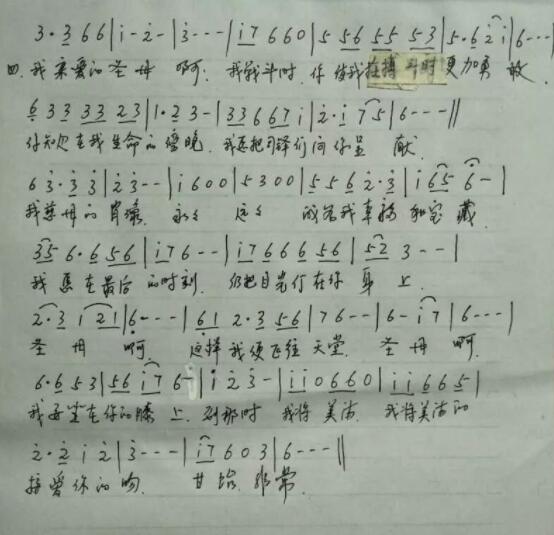 3·3 6 6|i - 2̇ -|3̇ - - -|i 7 6 6 0|5 5 6 5 5 5 3|5·6 2̇ i|6 - - -
四.我亲爱的圣母啊.我战斗时.你给我 更加勇敢
6 3 3 3 3 2 3|1·2 3 -|3 3 6 6 7 i|2̇·i 7 5|6 - - -‖
你知道在我生命的傍晚.我要把 们向你呈献.
6 3̇·3̇ 3̇|2̇ 3̇ - -|i 6 0 0|5 3 0 0|5 5 6 2̇·3̇|i 6 5 6 -|
我慈母的肖像.永远 远远 成为我 和宝藏
3 5 6·6 5 6|i 7 6 - -|i 7 6 6 6 5 6|5 2 3 - -|
我愿在最后的时刻.仍把目光 在你身上.
2·3 1 2 1|6 - - -|6 1 2·3 5 6|7 6 - -|6 - i 7|6 - - -|
圣母啊.这样我便飞往天堂.圣母啊.
6·6 5 3|5 6 i 7 6 -|i 2̇ 3̇ -|i i 0 6 6 0|i i 6 6 5|
我要坐在你的膝上.到那时 我将美满.我将美满的
2̇·2̇ i 2̇|3̇ - - -|i 7 6 0 3|6 - - -‖
接受你的吻. 甘饴.非常.